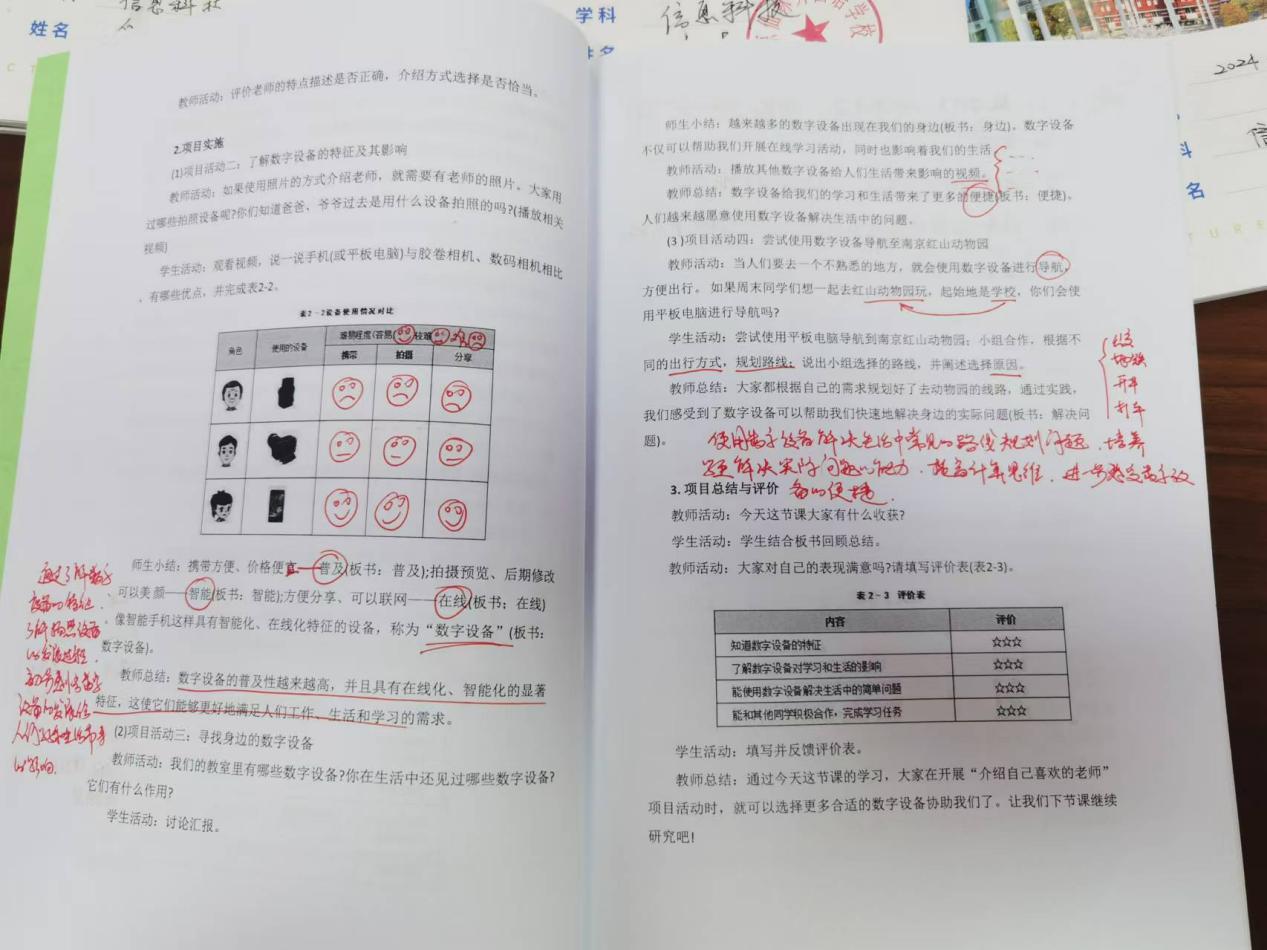 信息科技
姓名
学科
信息科技
姓名
2024
科
名
教师活动：评价老师的特点描述是否正确，介绍方式选择是否恰当。
2.项目实施
(1)项目活动二：了解数字设备的特征及其影响
教师活动：如果使用照片的方式介绍老师，就需要有老师的照片。大家用
过哪些拍照设备呢?你们知道爸爸、爷爷过去是用什么设备拍照的吗?(播放相关
视频)
学生活动：观看视频，说一说手机(或平板电脑)与胶卷相机、数码相机相比
，有哪些优点，并完成表2-2。
表2-2设备使用情况对比
角色 使用的设备 难易程度(容易 较难 难
携带 拍摄 分享
师生小结：携带方便、价格便宜——普及(板书：普及);拍摄预览、后期修改
、可以美颜——智能(板书：智能);方便分享、可以联网——在线(板书：在线)
。像智能手机这样具有智能化、在线化特征的设备，称为“数字设备”(板书：
数字设备)。
教师总结：数字设备的普及性越来越高，并且具有在线化、智能化的显著
特征，这使它们能够更好地满足人们工作、生活和学习的需求。
(2)项目活动三：寻找身边的数字设备
教师活动：我们的教室里有哪些数字设备?你在生活中还见过哪些数字设备?
它们有什么作用?
学生活动：讨论汇报。
通过了解数字
设备的特征，
了解拍照设备
的发展过程，
初步感受数字
设备的发展给
人们的学习生活带来
的影响
师生小结：越来越多的数字设备出现在我们的身边(板书：身边)。数字设备
不仅可以帮助我们开展在线学习活动，同时也影响着我们的生活
教师活动：播放其他数字设备给人们生活带来影响的视频。
教师总结：数字设备给我们的学习和生活带来了更多的便捷(板书：便捷)。
人们越来越愿意使用数字设备解决生活中的问题。
(3)项目活动四：尝试使用数字设备导航至南京红山动物园
教师活动：当人们要去一个不熟悉的地方，就会使用数字设备进行导航，
方便出行。如果周末同学们想一起去红山动物园玩，起始地是学校，你们会使
用平板电脑进行导航吗?
学生活动：尝试使用平板电脑导航到南京红山动物园；小组合作，根据不
同的出行方式，规划路线；说出小组选择的路线，并阐述选择原因。
公交
地铁
开车
打车
教师总结：大家都根据自己的需求规划好了去动物园的线路，通过实践，
我们感受到了数字设备可以帮助我们快速地解决身边的实际问题(板书：解决问
题)。
使用数字设备解决生活中常见的路线规划问题，培养
学生解决实际问题的能力，提高计算思维，进一步感受数字设
备的便捷，
3.项目总结与评价
教师活动：今天这节课大家有什么收获?
学生活动：学生结合板书回顾总结。
教师活动：大家对自己的表现满意吗?请填写评价表(表2-3)。
表2-3 评价表
内容 评价
知道数字设备的特征 ☆☆☆
了解数字设备对学习和生活的影响 ☆☆☆
能使用数字设备解决生活中的简单问题 ☆☆☆
能和其他同学积极合作，完成学习任务 ☆☆☆
学生活动：填写并反馈评价表。
教师总结：通过今天这节课的学习，大家在开展“介绍自己喜欢的老师”
项目活动时，就可以选择更多合适的数字设备协助我们了。让我们下节课继续
研究吧!